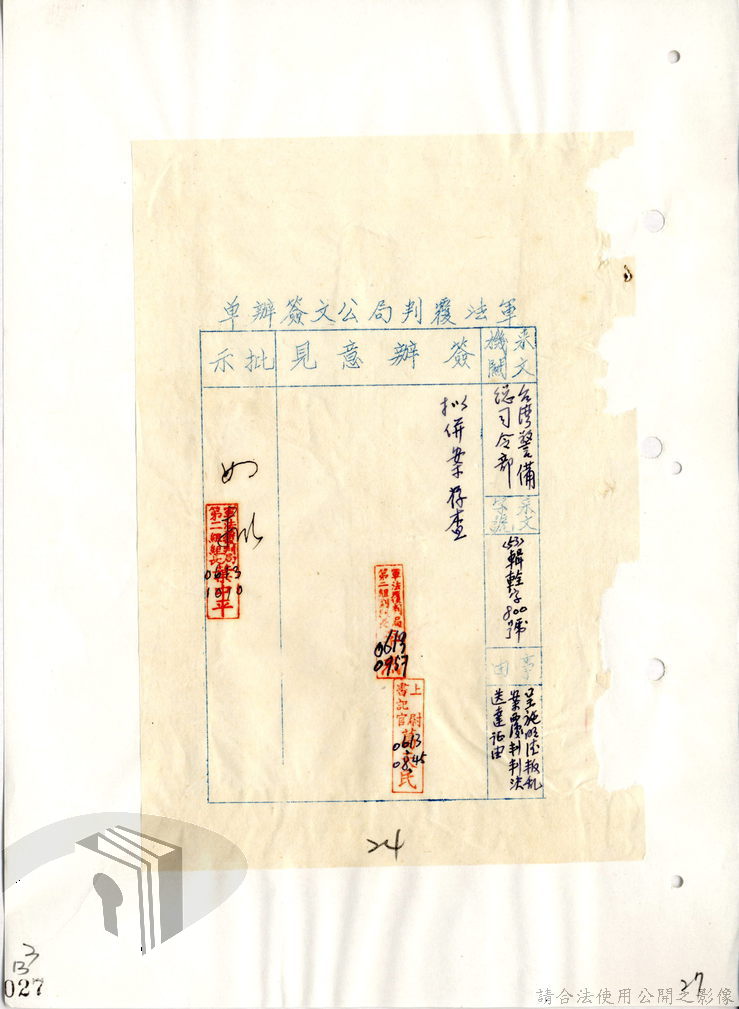 軍法覆判局公文簽辦單
來文機關
簽辦意見
批示
台灣警備
總司令部
來文字號
(53)
輯輇字
800號
事由
呈施明德叛乱
案覆判判決
送達証由
擬併案存查
如
擬
軍法覆判局
第二組組長
0613
1010
軍法覆判局
第二組副組長
0613
0957
上尉
書記官
0613
0845
民
24
3
B
027
27
請合法使用公開之影像